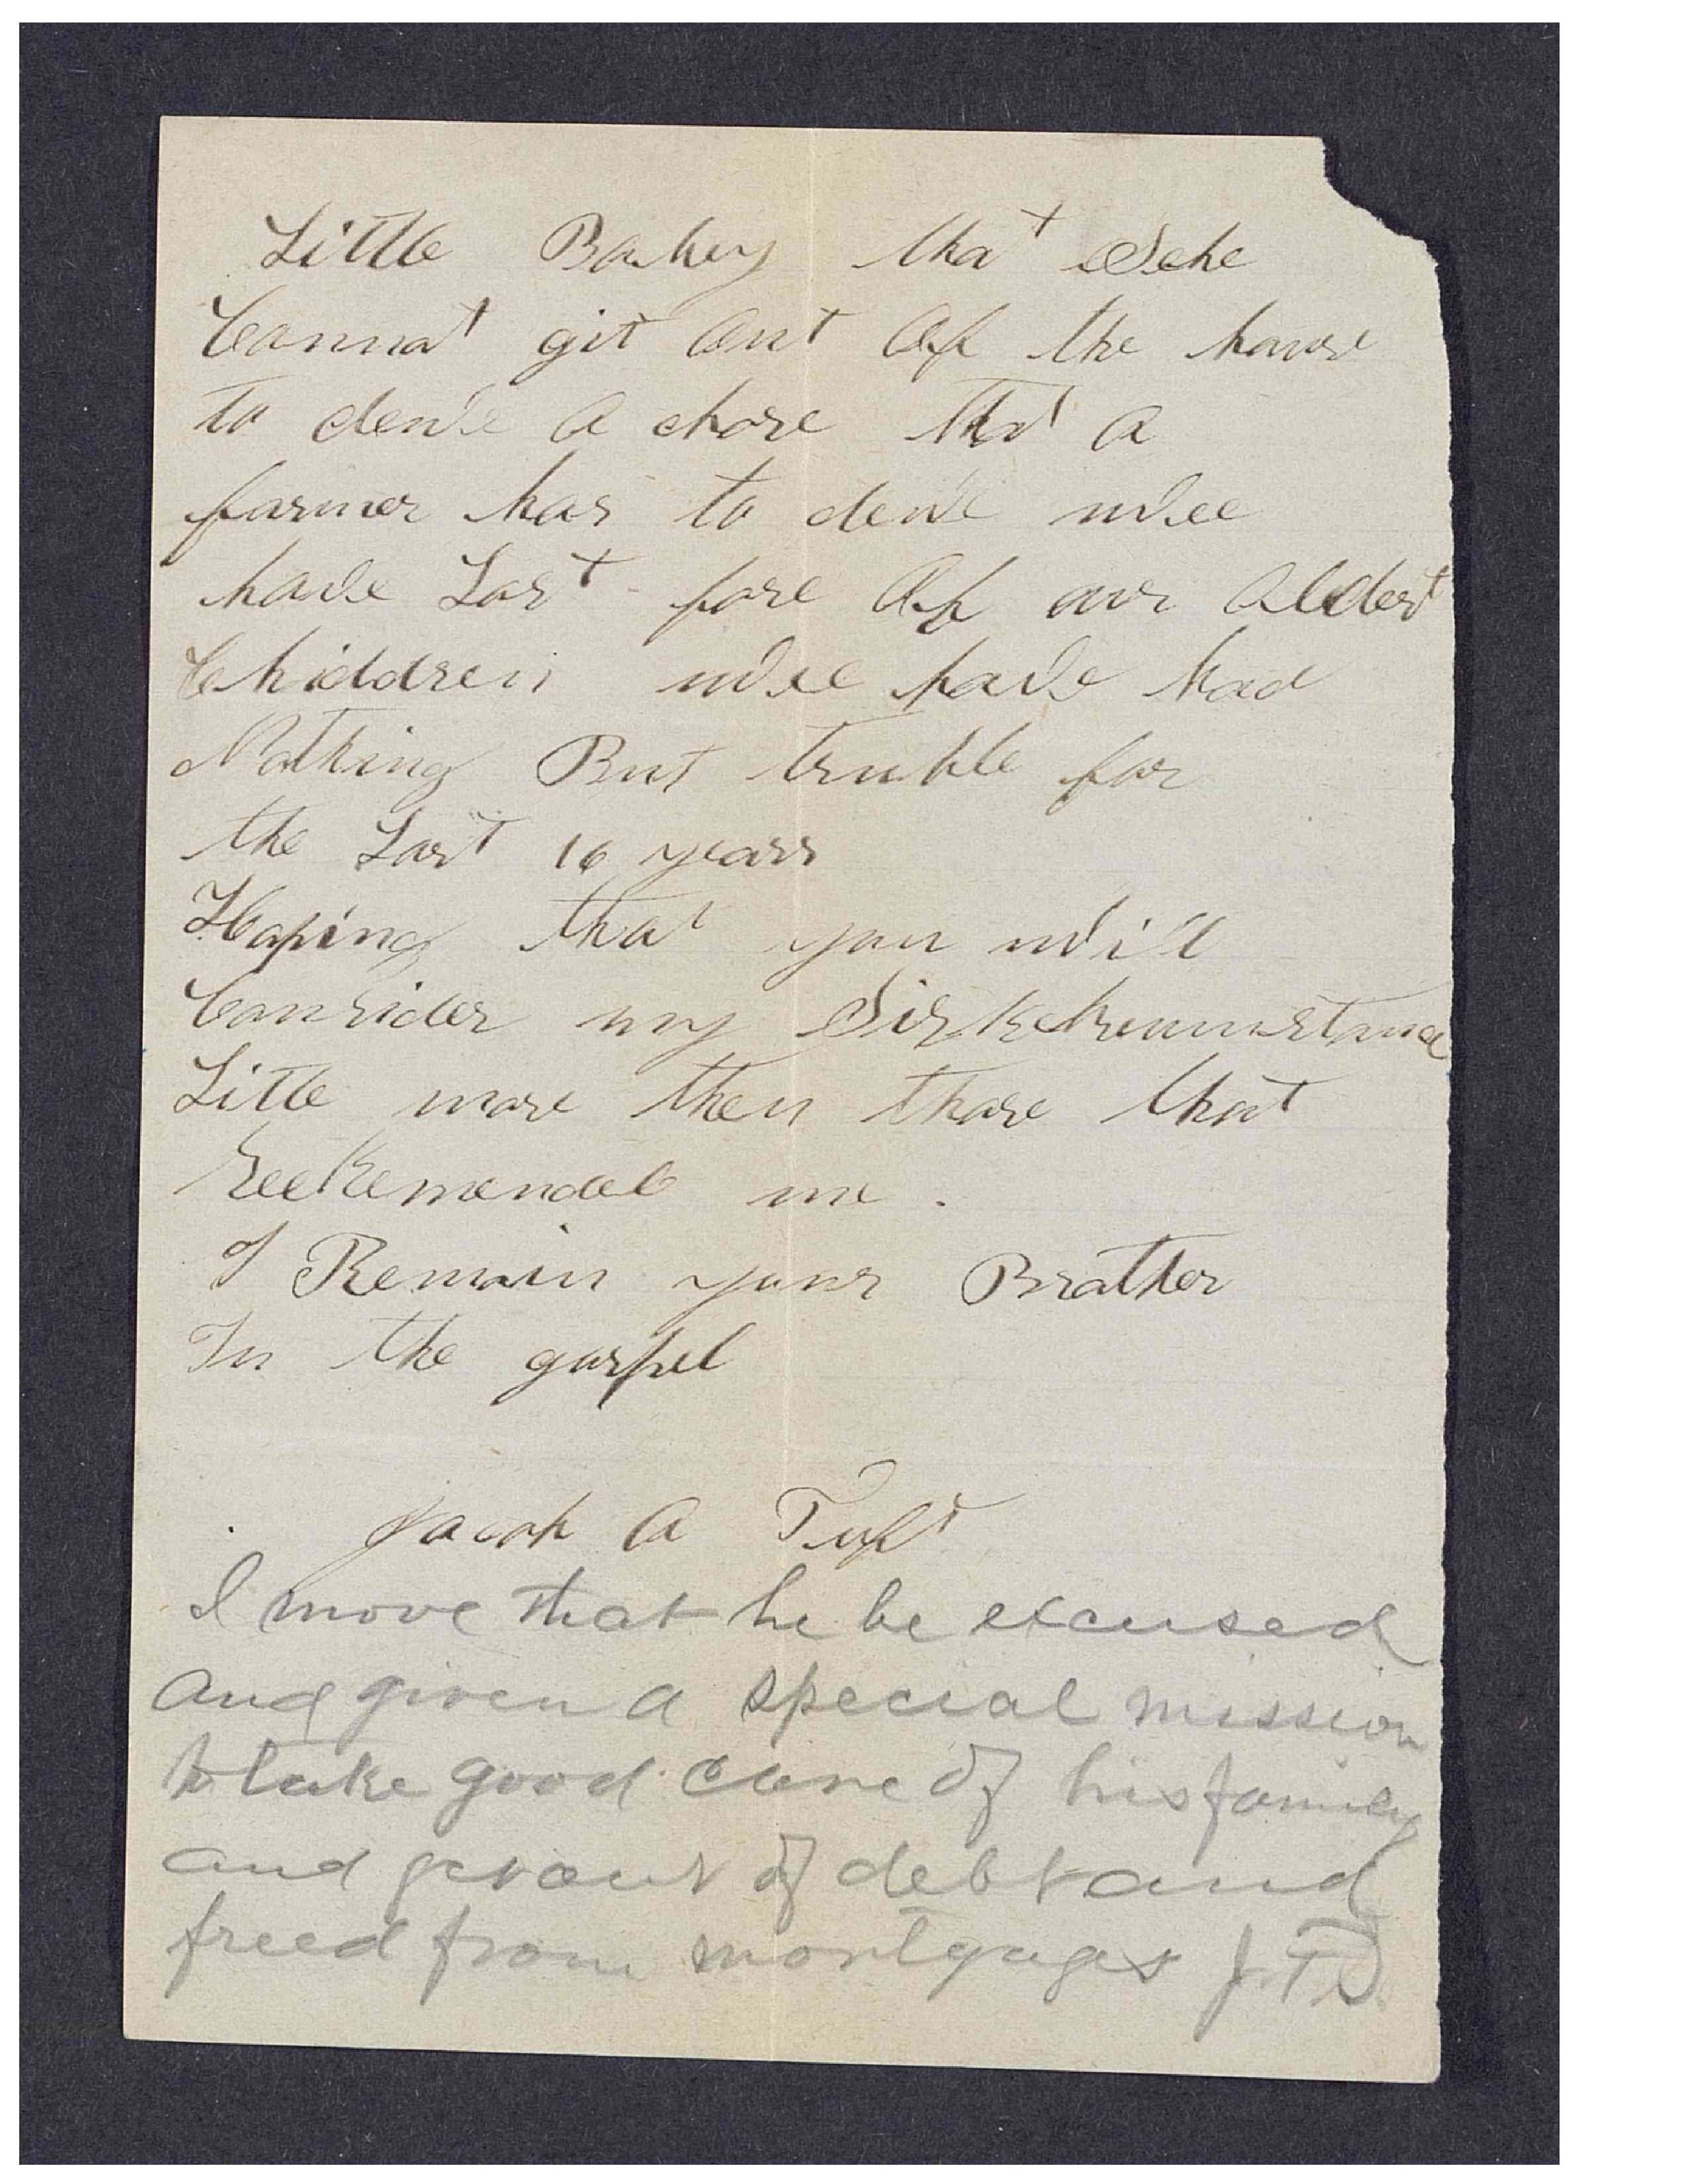 Little Babey that Sche
Cannot git Out Of the house
to dewe a chore that a
farmer has to dewe wee
have Lost fore Of our Oldest
Children wee have had
Nothing But truble for
the Last 16 years
Hoping that you will
Consider my
Little more then those that
me.
I Remain your Brother
In the gospel
Jacob A Tuft
I move that he be excused
and given a special mission
to take good care of his family
and get out of debt and
freed from mortgages J.F.S.